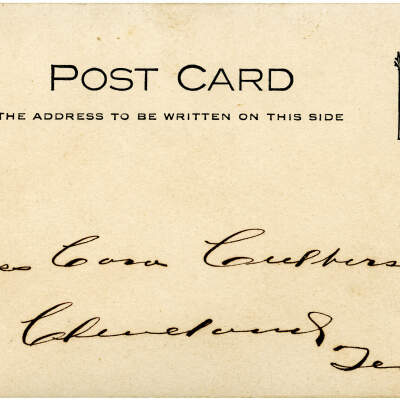 POST CARD
THE ADDRESS TO BE WRITTEN ON THIS SIDE
ss Cora Culbers
Cleveland
Te